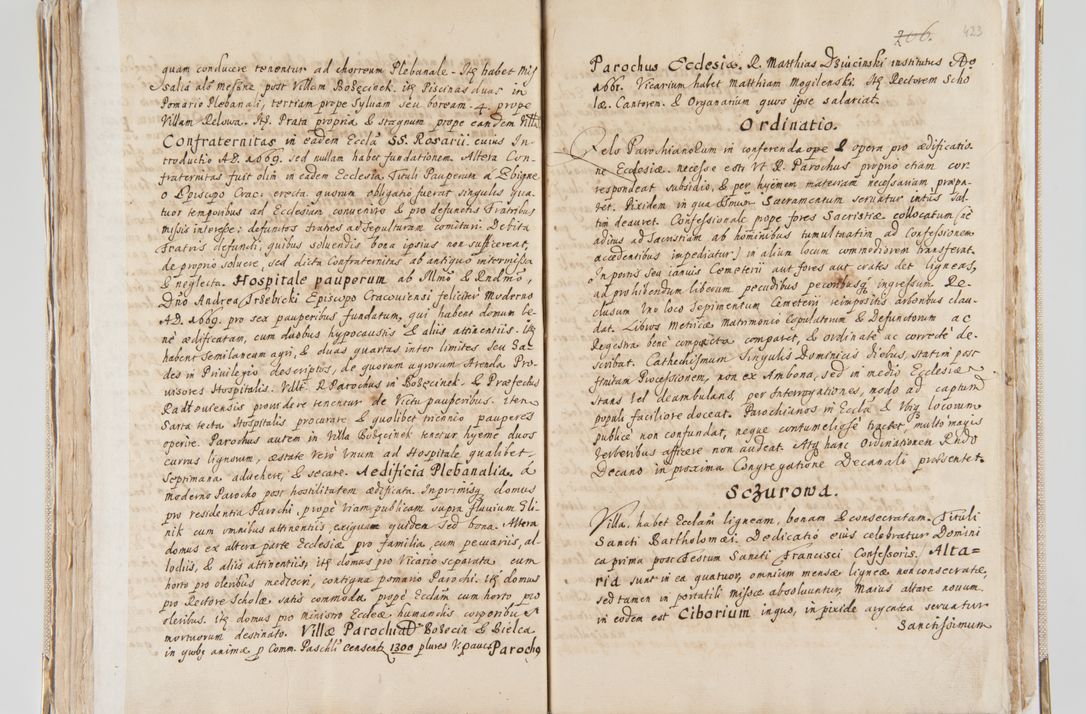 quam conducere tenentur ad horreum Plebanale. Itq habet Mis
salia als Meszne post Villam Bożęcinek. itq Piscinas duas in
Pomario Plebanali, tertiam prope Sylvam seu boream. 4. prope
Villam Relowa. Itq. Prata propria & stagnum prope eandem Villã.
Confraternitas in eadem Ecclã SS. Rosarii. cuius In-
troductio A.D. 1669. sed nullam habet fundationem. Altera Con-
fraternitas fuit olim in eadem Ecclesia Tituli Pauperum a Zbigne
o Episcopo Crac. erecta quorum obligatio fuerat singulis qua
tuor temporibus ad Ecclesiam convenire & pro defunctis Fratribus
missis interesse: defunctos fratres ad sepulturam comitari. Debita
Fratris defuncti, quibus solvendis bona ipsius non sufficerent,
de proprio solvere, sed dicta Confraternitas ab antiquo intermissa
& neglecta. Hospitale pauperum ab Illmõ & Rndmõ,
Dño Andrea Trzebicki Episcopo Cracoviensi feliciter moderno
A.D. 1669. pro sex pauperibus fundatum, qui habent domum be-
nè ædificatam, cum duobus hypocaustis & aliis attinentiis. Itq
habent semilaneum agri, & duas quartas inter limites seu Sa-
des in Privilegio descriptos, de quorum agrorum Arenda Pro-
visores Hospitalis. Villæ. R. Parochus in Bożęcinek. & Præfectus
Radłoviensis providere tenentur de Victu pauperibus. item
Sarta tecta Hospitalis procurare & quolibet triennio pauperes
operire. Parochus autem in Villa Bożęcinek tenetur hyeme duos
currus lignorum, æstate verò unum ad Hospitale qualibet
Septimana advehere, & secare. Aedificia Plebanalia. à
moderno Parocho post hostilitatem ædificata. Inprimisq domus
pro residentia Parochi, propè viam publicam supra fluvium Gli-
nik cum omnibus attinentiis exiguam quidem sed bona. Altera
domus ex altera parte Ecclesiæ pro familia, cum pecuariis, al-
lodiis, & aliis attinentiis, itq domus pro Vicario separata cum
horto pro oleribus mediocri, contigua pomario Parochi. Itq domus
pro Rectore Scholæ satis commoda propè Ecclam cum horto pro
oleribus. Itq domus pro ministro Eccleæ humandis corporibus
mortuorum destinato. Villæ Parochiales Bożęcin & Bielca
in quibq animæ p Comm. Paschlẽ censentr 1300 plures v. paucs Parochq
206. 423
Parochus Ecclesiæ. R. Matthias Dziucinski institutus Aõ
1661. Vicarium habet Matthiam Mogilenski. Itq Rectorem Scho
læ. Cantorem. & Organarium quos ipse salariat.
Ordinatio.
Zelo Parochianorum in conferenda ope & opera pro ædificatio-
ne Ecclesiæ. necesse est, ut R. Parochus proprio etiam cor-
respondeat subsidio, & per hyemem materiam necessariam præpa-
ret. Pixidem in qua Smum Sacramentum servatur intus sal-
tim deauret. Confessionale prope fores Sacristiæ collocatum (ne
aditus ad Sacristiam ab hominibus tumultuatim ad confessionem
accedentibus impediatur) in alium locum commodiorem transferat.
In portis seu ianuis Cemeterii aut fores aut crates det ligneas,
ad prohibendum liberum pecudibus pecoribusq ingressum. Re-
clusum uno loco Sepimentum Cemeterii reimpositis arboribus clau-
dat. Libros Metricæ Matrimonio Copulatorum & Defunctorum ac
Regestra benè compacta comparet, & ordinatè ac correctè de-
scribat. Cathechismum singulis Dominicis diebus, statim post
finitam Processionem, non ex Ambona, sed in medio Ecclesiæ
stans vel deambulans, per interrogationes, modo ad captum
populi faciliore doceat. Parochianos in Ecclã & Viis locorum
publicè non confundat, neque contumeliosè tractet, multo magis
Verberibus afficere non audeat. Atq hanc Ordinationem Rndo
Decano in proxima Congregatione Decanali præsentet.
Sczurowa.
Villa, habet Ecclam ligneam, bonam & consecratam. Tituli
Sancti Bartholomæi. Dedicatio eius celebratur Domini
ca prima post Festum Sancti Francisci Confessoris. Alta=
ria sunt in ea quatuor, omnium mensæ ligneæ non consecratæ,
sed tamen in portatili missæ absolvuntur, Maius altare novum
in eodem est Ciborium in quo, in pixide argentea servatur
Sanctissimum